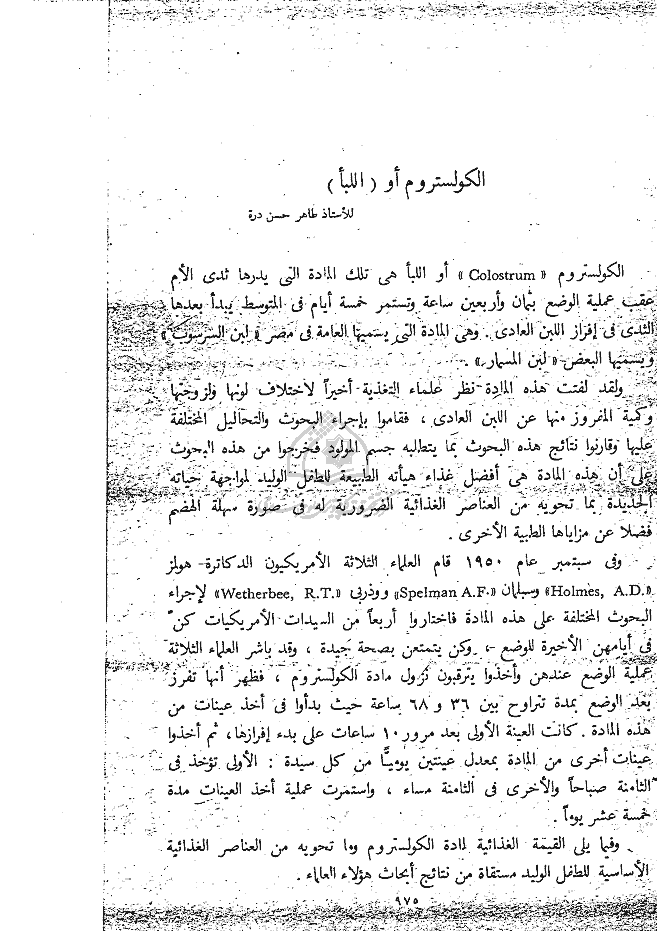 الكولستروم أو ( اللبأ )
للأستاذ طاهر حسن درة
الكولستروم « Colostrum » أو اللبأ هى تلك المادة التى يدرها ثدى الأم
عقب عملية الوضع بثمان وأربعين ساعة وتستمر خمسة أيام فى المتوسط يبدأ بعدها
الثدى فى إفراز اللبن العادى . وهى المادة التى يسميها العامة فى مصر « لبن السرسوب »
ويسميها البعض « لبن المسمار » .
ولقد لفتت هذه المادة نظر علماء التغذية أخيراً لاختلاف لونها ولزوجتها
وكمية المفروز منها عن اللبن العادى ، فقاموا بإجراء البحوث والتحاليل المختلفة
عليها وقارنوا نتائج هذه البحوث بما يتطلبه جسم المولود فخرجوا من هذه البحوث
على أن هذه المادة هى أفضل غذاء هيأته الطبيعة للطفل الوليد لمواجهة حياته
الجديدة بما تحويه من العناصر الغذائية الضرورية له فى صورة سهلة الهضم
فضلا عن مزاياها الطبية الأخرى .
وفى سبتمبر عام ١٩٥٠ قام العلماء الثلاثة الأمريكيون الدكاترة هولز
«Holmes, A.D.» وسبلمان «Spelman A.F.» ووذربى «Wetherbee, R.T.» لإجراء
البحوث المختلفة على هذه المادة فاختاروا أربعاً من السيدات الأمريكيات كن
فى أيامهن الأخيرة للوضع ، وكن يتمتعن بصحة جيدة ، وقد باشر العلماء الثلاثة
عملية الوضع عندهن وأخذوا يترقبون نزول مادة الكولستروم ، فظهر أنها تفرز
بعد الوضع بمدة تتراوح بين ٣٦ و ٦٨ ساعة حيث بدأوا فى أخذ عينات من
هذه المادة . كانت العينة الأولى بعد مرور ١٠ ساعات على بدء إفرازها، ثم أخذوا
عينات أخرى من المادة بمعدل عينتين يوميًّا من كل سيدة : الأولى تؤخذ فى
الثامنة صباحاً والأخرى فى الثامنة مساء ، واستمرت عملية أخذ العينات مدة
خمسة عشر يوماً .
وفيما يلى القيمة الغذائية لمادة الكولستروم وما تحويه من العناصر الغذائية
الأساسية للطفل الوليد مستقاة من نتائج أبحاث هؤلاء العلماء .
٩٧٥